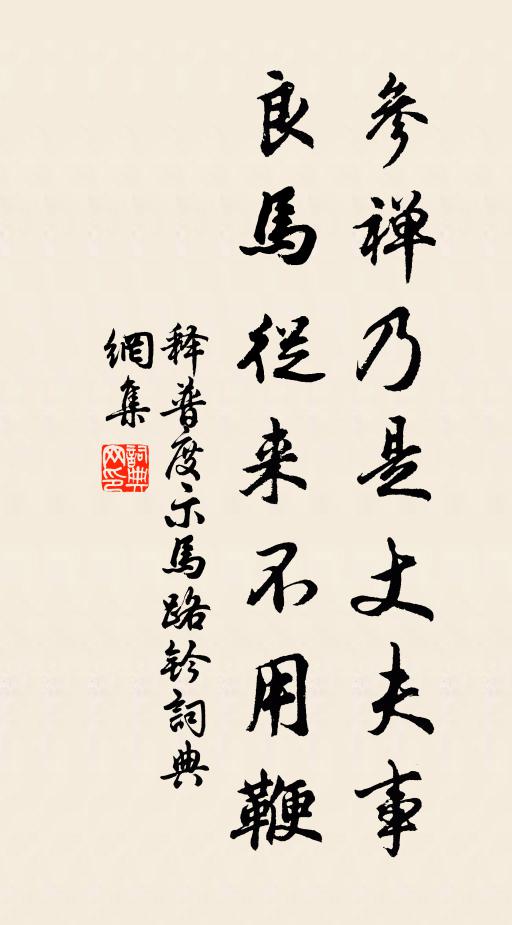 參禅乃是丈夫事
良馬從来不用鞭
释普度示馬路鈐詞典
網集
詞典
网印